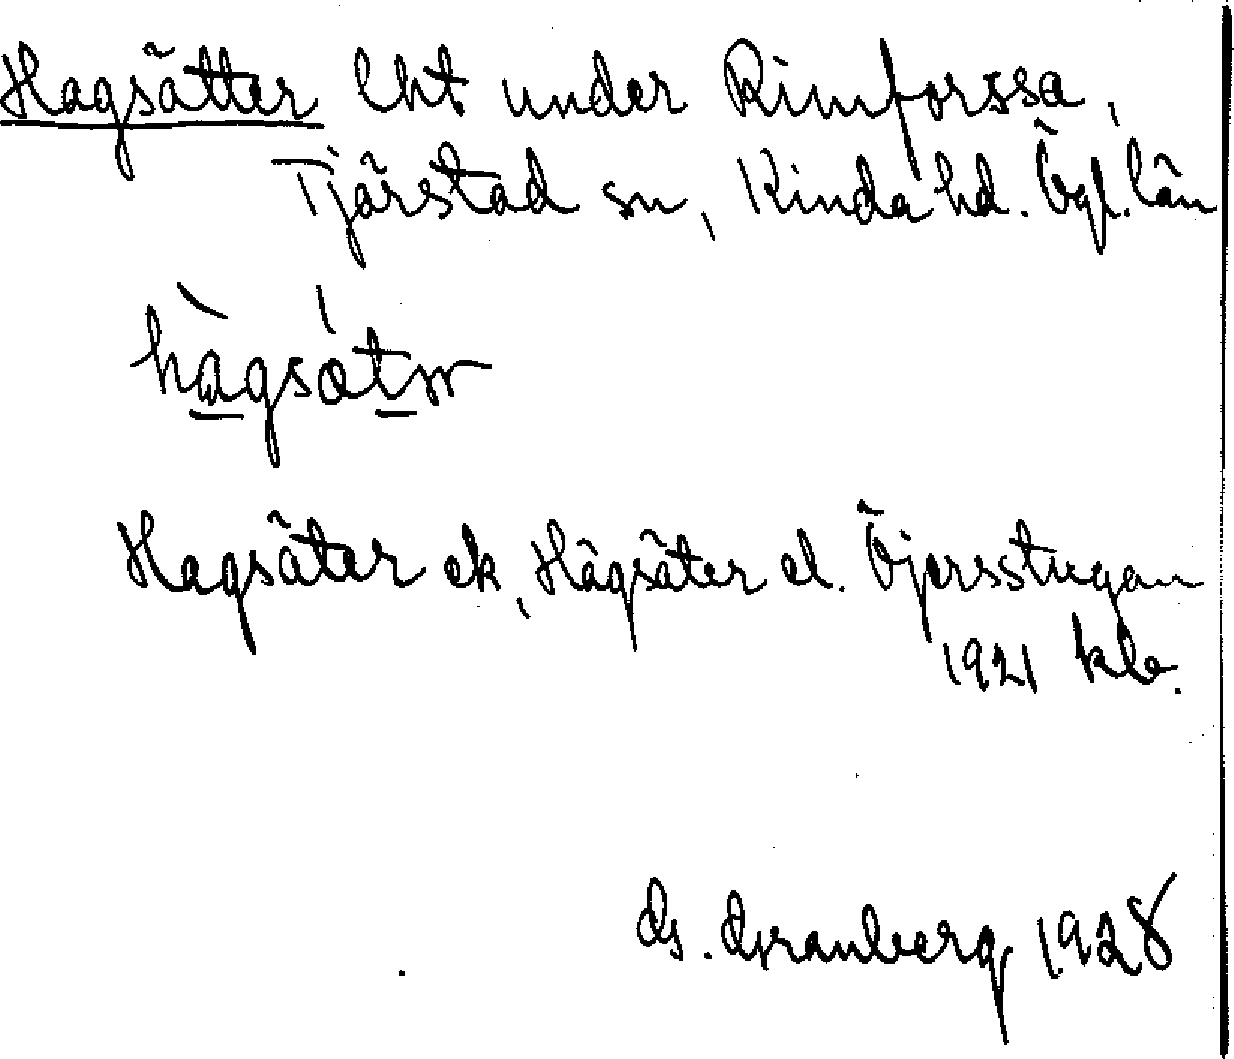 Hagsätter lht under Rimforssa,
Tjärstad sn, Kinda hd. Ögl. län
hàgsǻtər
Hagsäter ek, Hägsäter el. Öjersstugan
1921 klb.
G. Granberg 1928